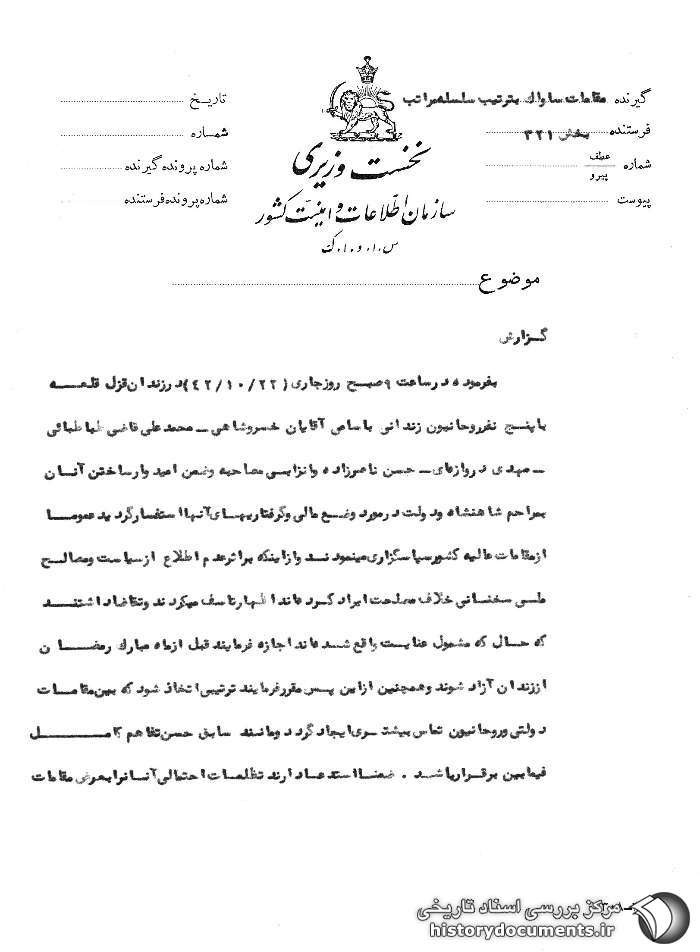 گیرنده مقامات ساواك بترتیب سلسله‌مراتب
فرستنده بخش ۳۲۱
شماره عطف
پیرو
پیوست
تاریخ
شماره
شماره پرونده گیرنده
شماره پرونده فرستنده
نخست وزیری
سازمان اطلاعات و امنیت کشور
س.ا.و.ا.ک
موضوع
گزارش
بفرموده در ساعت ۹ صبح روز جاری (۴۲/۱۰/۲۲) در زندان قزل قلعه
با پنج نفر روحانیون زندانی باسامی آقایان خسروشاهی ــ محمد علی قاضی طباطبائی
ــ مهدی دروازه‌ای ــ حسن ناصرزاده و انزابی مصاحبه و ضمن امیدوار ساختن آنان
بمراحم شاهنشاه و دولت در مورد وضع مالی و گرفتاریهای آنها استفسار گردید عموما
از مقامات عالیه کشور سپاسگزاری مینمودند و از اینکه بر اثر عدم اطلاع از سیاست و مصالح
طی سخنانی خلاف مصلحت ایراد کرده‌اند اظهار تاسف میکردند و تقاضا داشتند
که حال که مشمول عنایت واقع شده‌اند اجازه فرمایند قبل از ماه مبارك رمضان
از زندان آزاد شوند و همچنین از این پس مقرر فرمایند ترتیبی اتخاذ شود که بین مقامات
دولتی و روحانیون تماس بیشتری ایجاد گردد و مانند سابق حسن تفاهم کامل
فیمابین برقرار باشد . ضمنا استدعا دارند تظلمات احتمالی آنانرا بعرض مقامات
مرکز بررسی اسناد تاریخی
historydocuments.ir